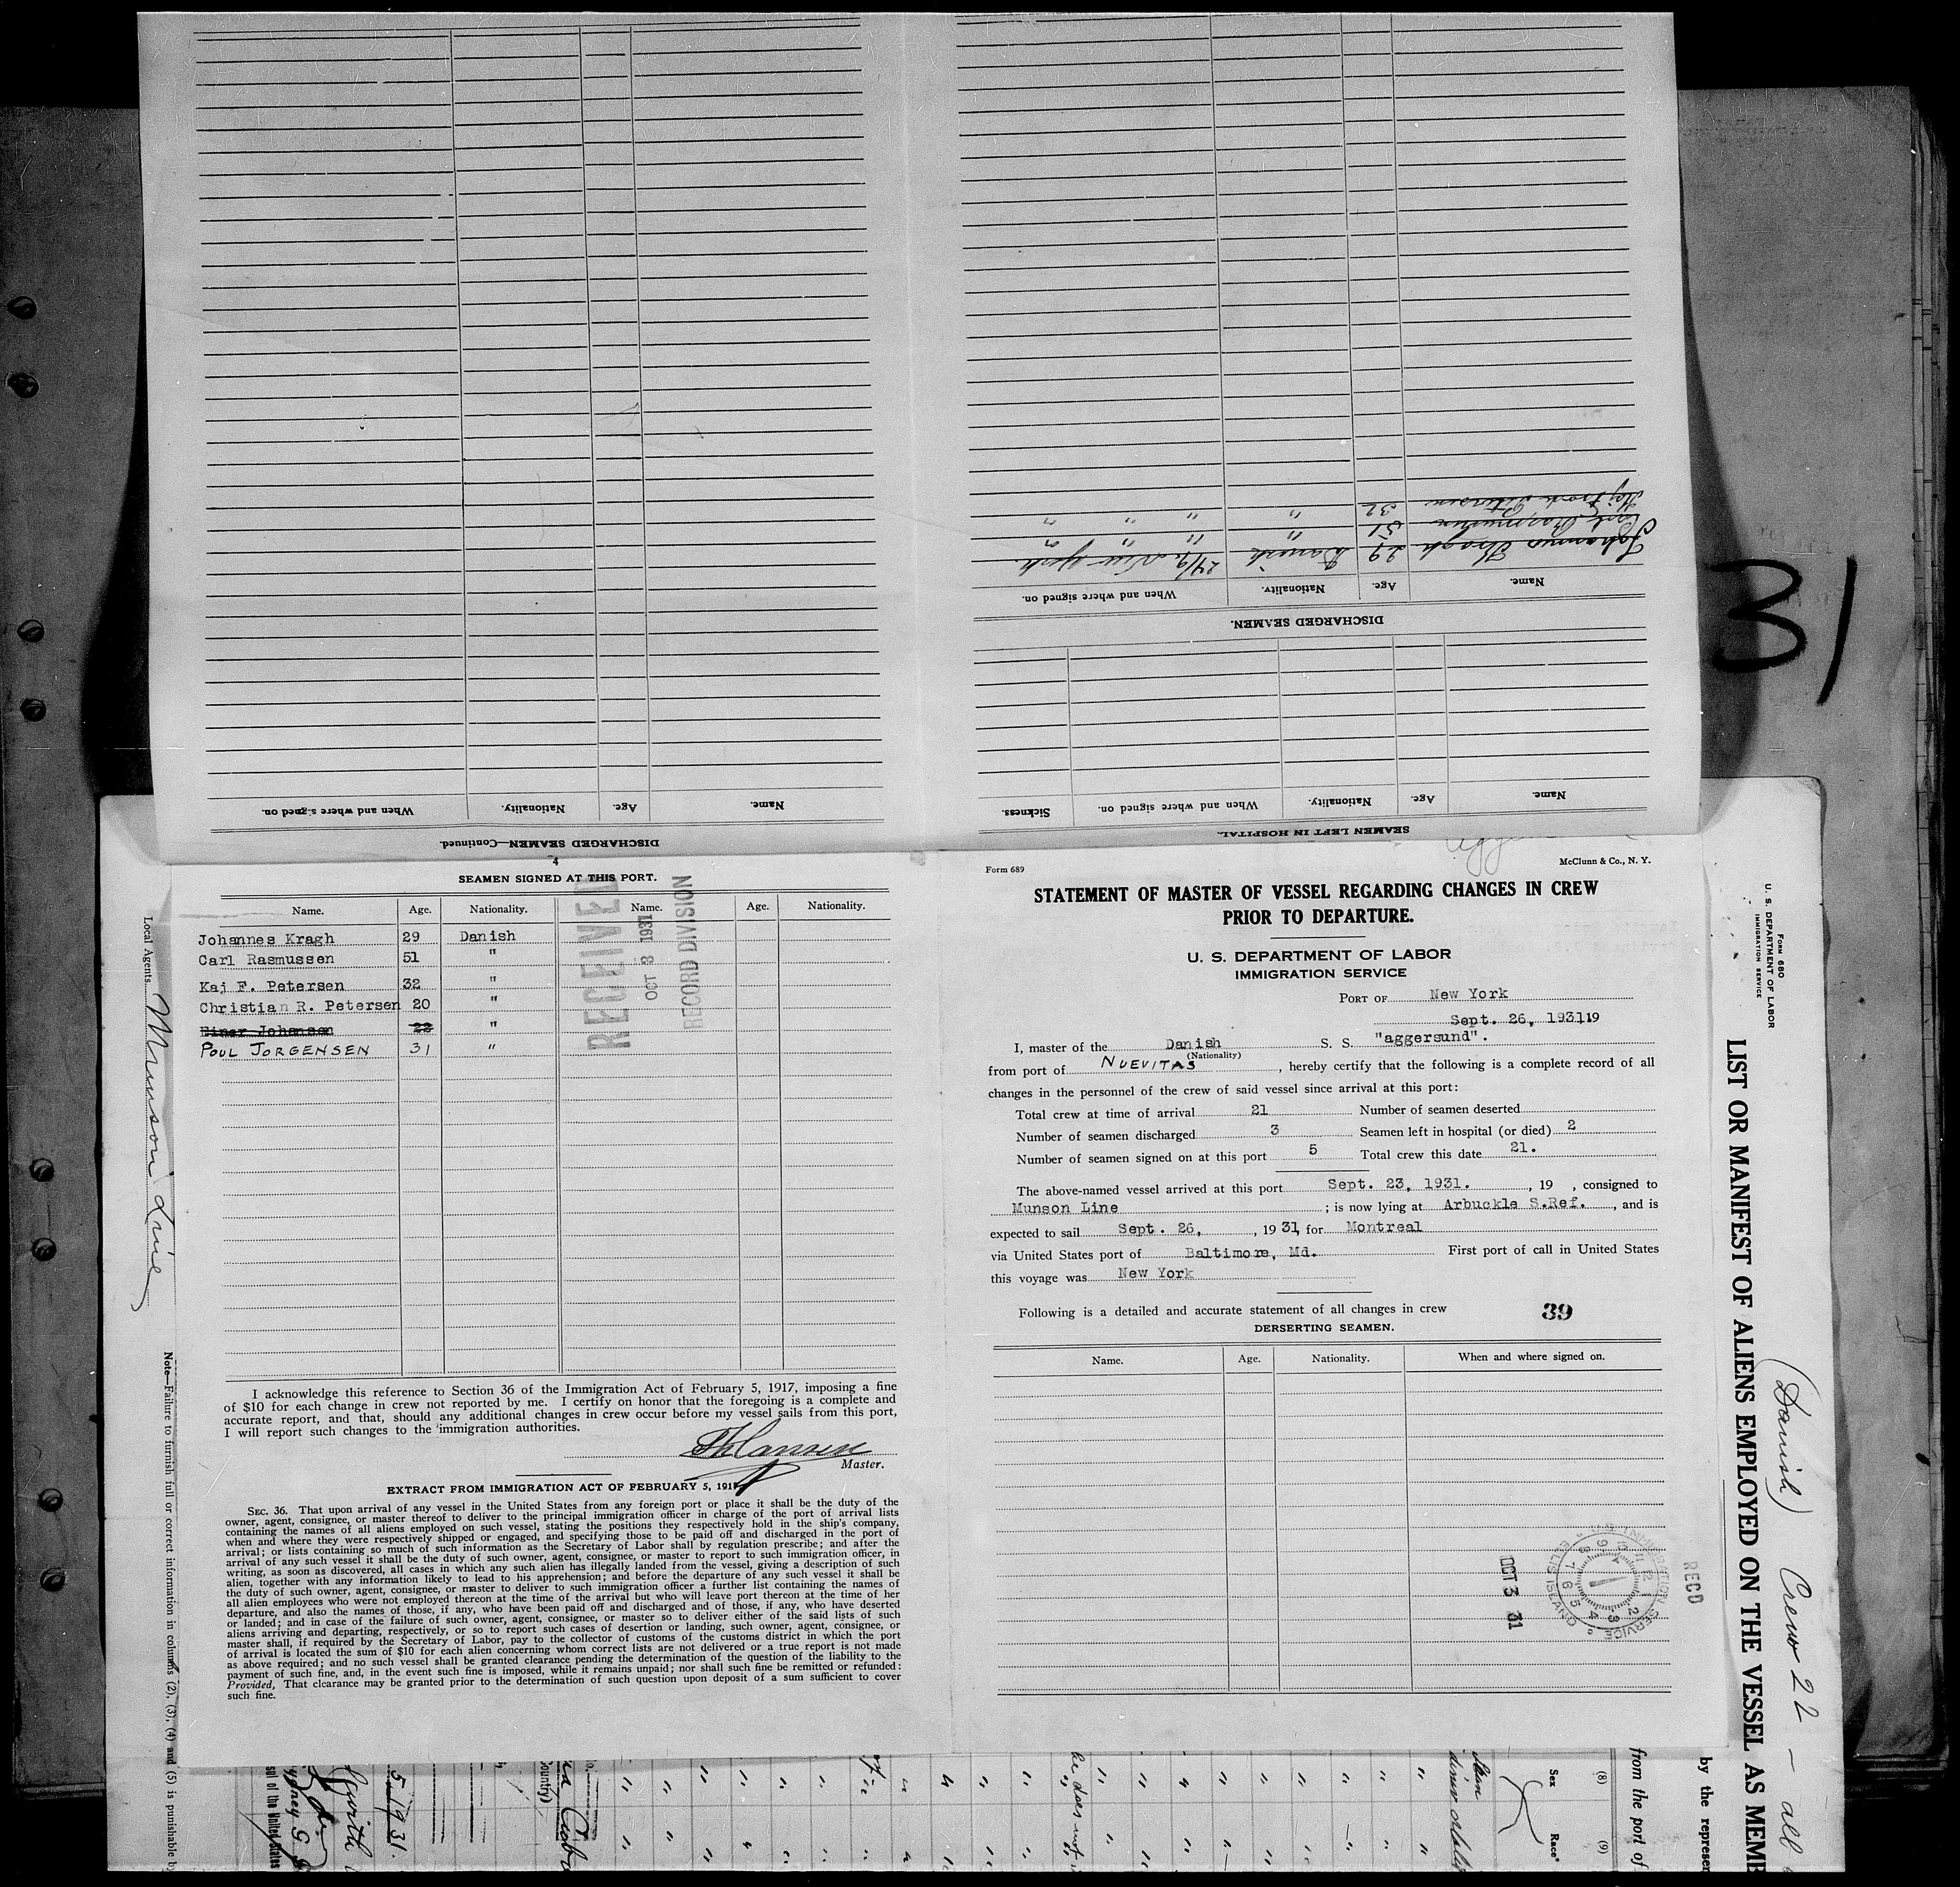 DISCHARGED SEAMEN.
Name. Age. Nationality. When and where signed on.
Johannes Kragh 29 Danish 24/9 New York
Carl Rasmussen 51 " " " "
Kaj Petersen 32 " " " "
SEAMEN LEFT IN HOSPITAL.
Name. Age. Nationality. When and where signed on. Sickness.
DISCHARGED SEAMEN—Continued.
Name. Age. Nationality. When and where signed on.
31
4
SEAMEN SIGNED AT THIS PORT.
Name. Age. Nationality. Name. Age. Nationality.
Johannes Kragh 29 Danish
Carl Rasmussen 51 "
Kaj F. Petersen 32 "
Christian R. Petersen 20 "
Einer Johansen 22 "
POUL JORGENSEN 31 "
RECEIVED
OCT 8 1931
RECORD DIVISION
I acknowledge this reference to Section 36 of the Immigration Act of February 5, 1917, imposing a fine
of $10 for each change in crew not reported by me. I certify on honor that the foregoing is a complete and
accurate report, and that, should any additional changes in crew occur before my vessel sails from this port,
I will report such changes to the immigration authorities.
Master.
EXTRACT FROM IMMIGRATION ACT OF FEBRUARY 5, 1917
SEC. 36. That upon arrival of any vessel in the United States from any foreign port or place it shall be the duty of the
owner, agent, consignee, or master thereof to deliver to the principal immigration officer in charge of the port of arrival lists
containing the names of all aliens employed on such vessel, stating the positions they respectively hold in the ship's company,
when and where they were respectively shipped or engaged, and specifying those to be paid off and discharged in the port of
arrival; or lists containing so much of such information as the Secretary of Labor shall by regulation prescribe; and after the
arrival of any such vessel it shall be the duty of such owner, agent, consignee, or master to report to such immigration officer, in
writing, as soon as discovered, all cases in which any such alien has illegally landed from the vessel, giving a description of such
alien, together with any information likely to lead to his apprehension; and before the departure of any such vessel it shall be
the duty of such owner, agent, consignee, or master to deliver to such immigration officer a further list containing the names of
all alien employees who were not employed thereon at the time of the arrival but who will leave port thereon at the time of her
departure, and also the names of those, if any, who have been paid off and discharged and of those, if any, who have deserted
or landed; and in case of the failure of such owner, agent, consignee, or master so to deliver either of the said lists of such
aliens arriving and departing, respectively, or so to report such cases of desertion or landing, such owner, agent, consignee, or
master shall, if required by the Secretary of Labor, pay to the collector of customs of the customs district in which the port
of arrival is located the sum of $10 for each alien concerning whom correct lists are not delivered or a true report is not made
as above required; and no such vessel shall be granted clearance pending the determination of the question of the liability to the
payment of such fine, and, in the event such fine is imposed, while it remains unpaid; nor shall such fine be remitted or refunded:
Provided, That clearance may be granted prior to the determination of such question upon deposit of a sum sufficient to cover
such fine.
Form 689
McClunn & Co., N. Y.
STATEMENT OF MASTER OF VESSEL REGARDING CHANGES IN CREW
PRIOR TO DEPARTURE.
U. S. DEPARTMENT OF LABOR
IMMIGRATION SERVICE
PORT OF New York
Sept. 26, 1931 19
I, master of the Danish S. S. "aggersund".
(Nationality)
from port of NUEVITAS, hereby certify that the following is a complete record of all
changes in the personnel of the crew of said vessel since arrival at this port:
Total crew at time of arrival 21 Number of seamen deserted
Number of seamen discharged 3 Seamen left in hospital (or died) 2
Number of seamen signed on at this port 5 Total crew this date 21.
The above-named vessel arrived at this port Sept. 23, 1931. , 19 , consigned to
Munson Line ; is now lying at Arbuckle S.Ref. , and is
expected to sail Sept. 26, , 19 31, for Montreal
via United States port of Baltimore, Md. First port of call in United States
this voyage was New York
Following is a detailed and accurate statement of all changes in crew
39
DERSERTING SEAMEN.
Name. Age. Nationality. When and where signed on.
OCT 3 31
IMMIGRATION SERVICE
ELLIS ISLAND
RECD
Local Agents Munson Line
Note—Failure to furnish full or correct information in columns (2), (3), (4) and (5) is punishable by
FORM 680
U. S. DEPARTMENT OF LABOR
IMMIGRATION SERVICE
LIST OR MANIFEST OF ALIENS EMPLOYED ON THE VESSEL AS MEMB
(Danish) Crew 22 - all
by the represen
from the port of
(8) (9)
Sex Race*
he does not
Country)
5 1931.
sul of the United States